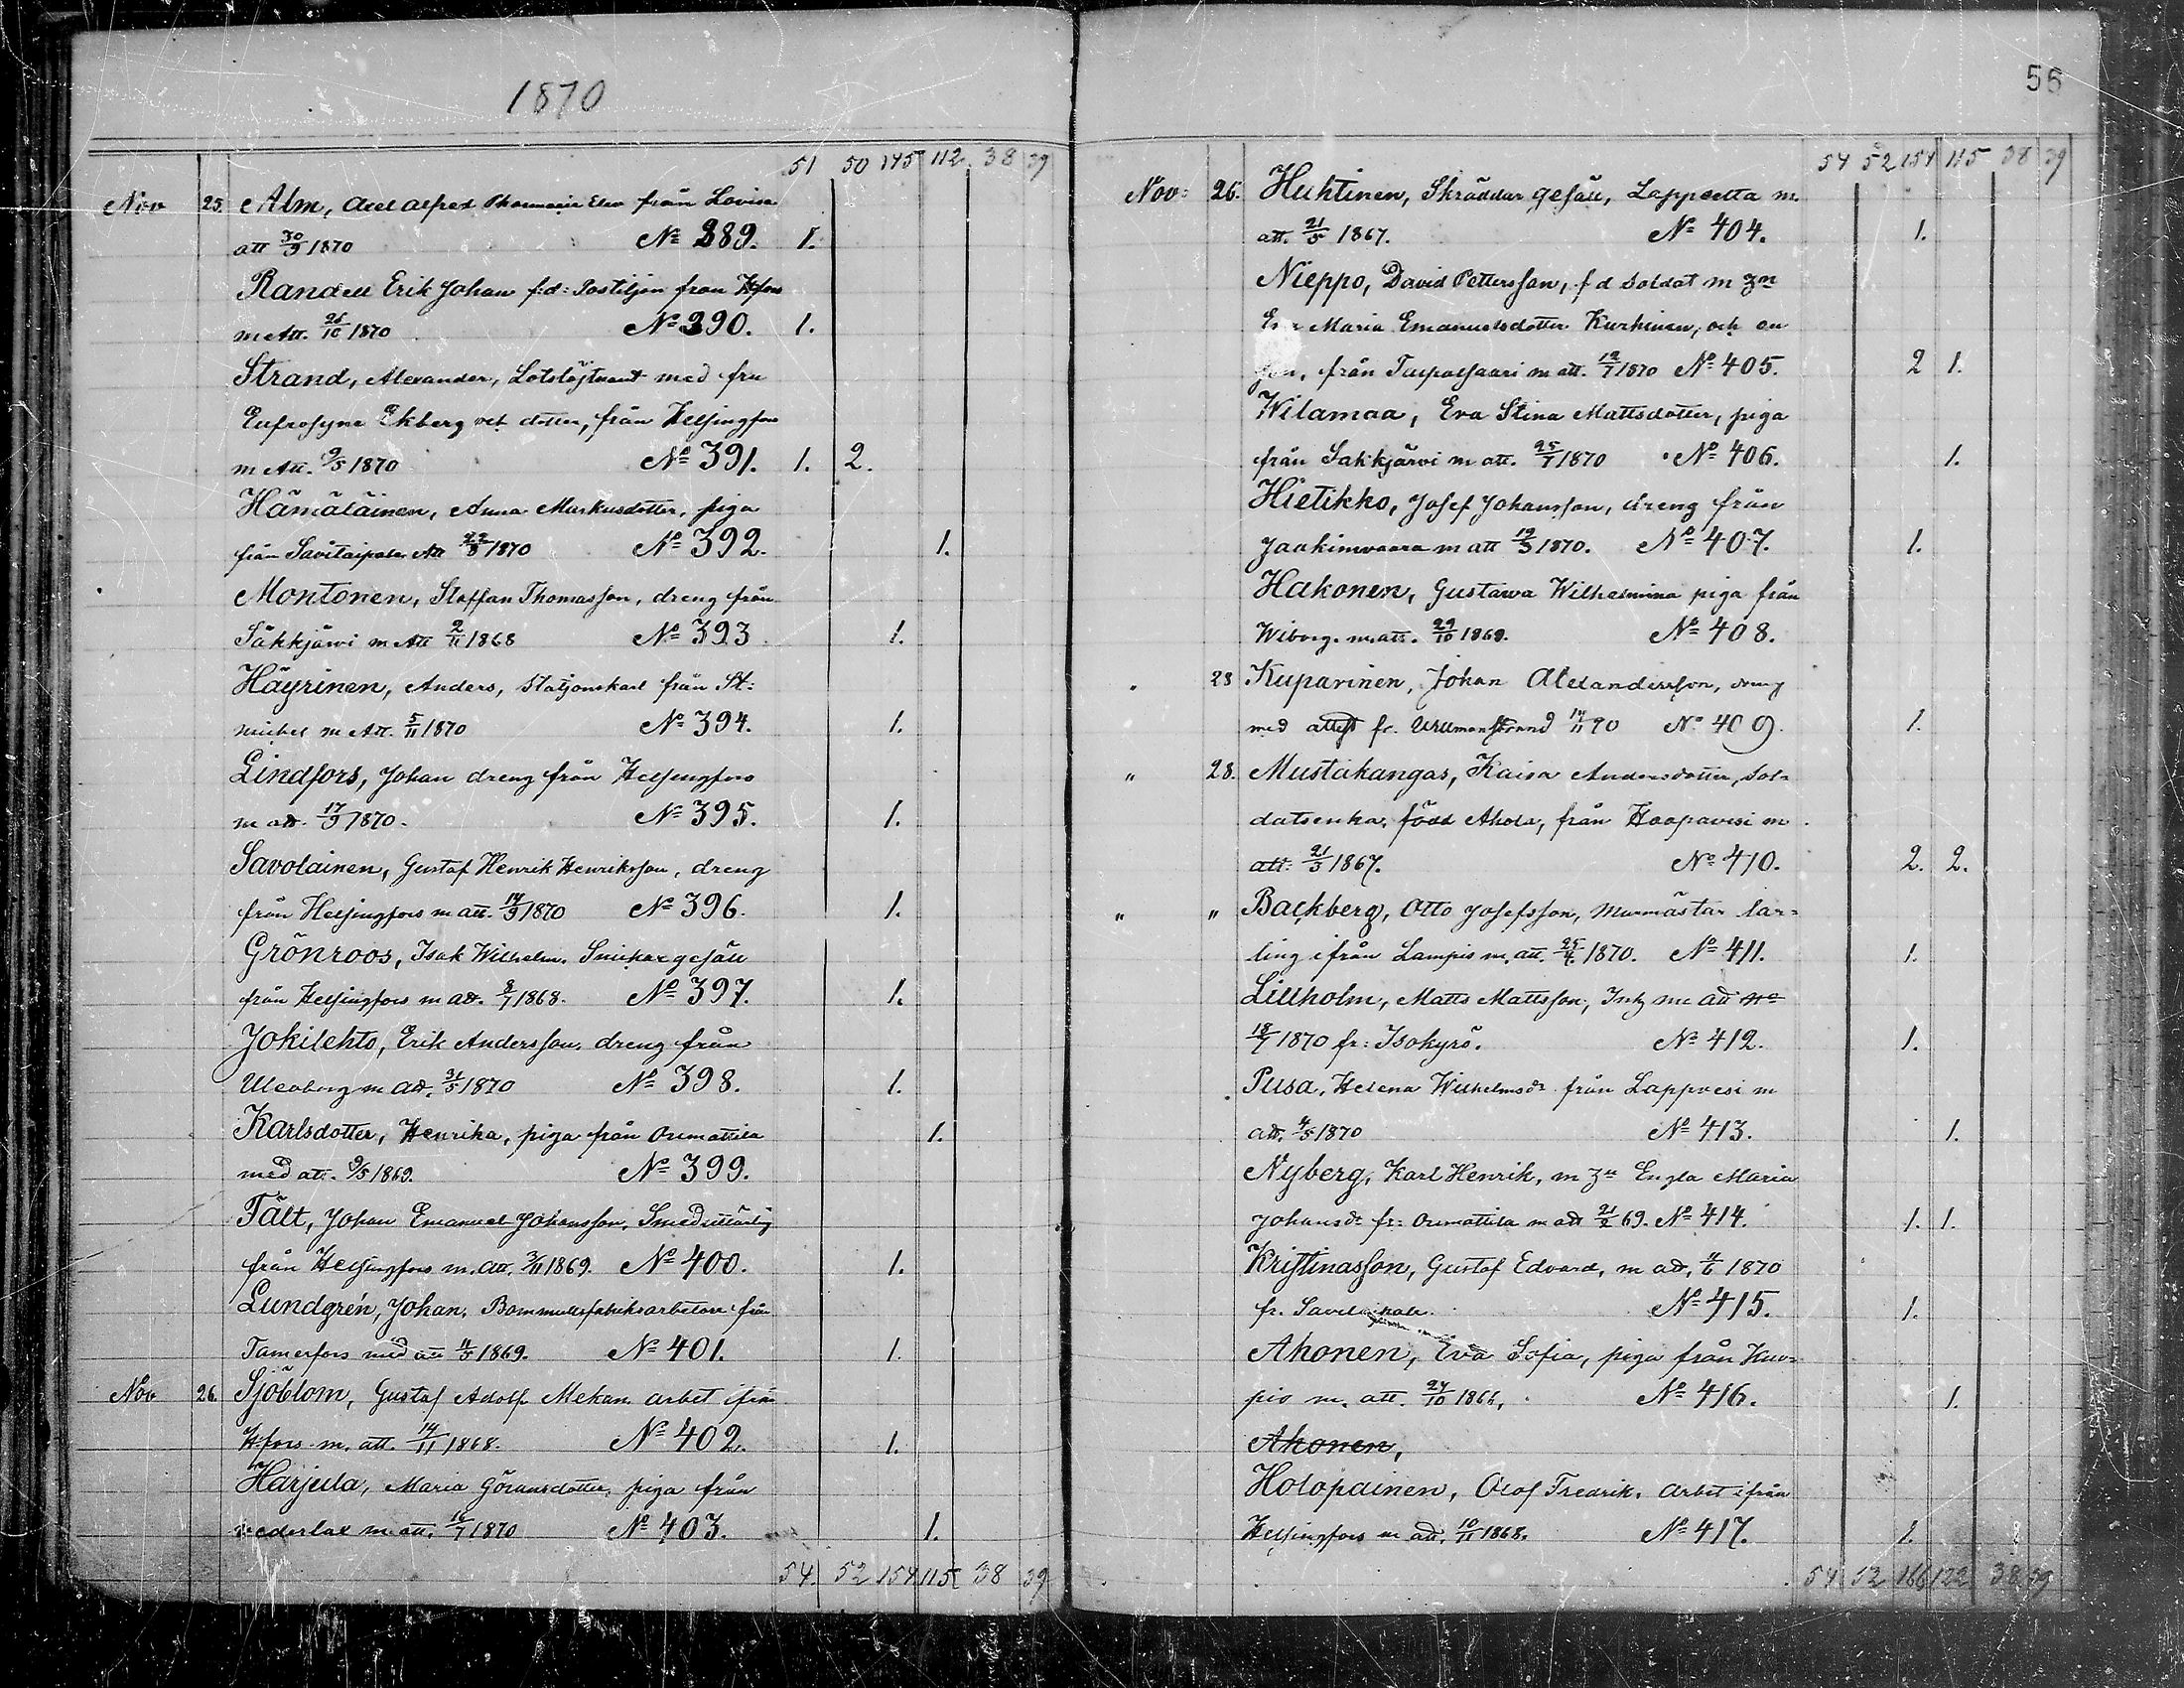 1870
51 50 145 112 38 39
Nov 25. Alm, Axel Alfred Pharmacie Elev från Lovisa
att 30/9 1870 No 389. 1.
Randell Erik Johan f:d: Postiljon från Hfors
m Att. 26/10 1870 No 390. 1.
Strand, Alexander, Lotslöjtnant med fru
Eufrosyne Ekberg och dotter, från Helsingfors
m Att. 9/5 1870 No 391. 1. 2.
Hämäläinen, Anna Markusdotter, piga
från Savitaipale Att 22/8 1870 No 392. 1.
Montonen, Staffan Thomasson, dreng från
Säkkjärvi m Att 2/11 1868 No 393. 1.
Häyrinen, Anders, Statjonskarl från St:
michel m Att. 5/11 1870 No 394. 1.
Lindfors, Johan dreng från Helsingfors
m att. 17/9 1870. No 395. 1.
Savolainen, Gustaf Henrik Henriksson, dreng
från Helsingfors m att. 14/9 1870 No 396. 1.
Grönroos, Isak Wilhelm. Snickaregesäll
från Helsingfors m att. 8/7 1868. No 397. 1.
Jokilehto, Erik Andersson, dreng från
Uleaborg m att. 31/5 1870 No 398. 1.
Karlsdotter, Henrika, piga från Orimattila 1.
med att. 9/5 1869. No 399.
Tält, Johan Emanuel Johansson,
från Helsingfors m. att. 3/11 1869. No 400. 1.
Lundgrén, Johan, Bommullsfabriksarbetare från
Tamerfors med att 11/5 1869. No 401. 1.
Nov 26. Sjöblom, Gustaf Adolf. Mekan. arbet ifrån
Hfors m. att. 14/11 1868. No 402. 1.
Harjula, Maria Göransdotter, piga från
nederlax m. att. 16/7 1870 No 403. 1.
54. 52 154 115 38 39
56
54 52 154 115 38 39
Nov: 26. Huhtinen, Skräddar gesäll, Lappvetta m.
att. 21/5 1867. No 404. 1.
Nieppo, David Pettersson, f d Soldat m zon
Maria Emanuelsdotter Kurkinen, och en
son, från Taipalsaari m att. 12/7 1870 No 405. 2 1.
Wilamaa, Eva Stina Mattsdotter, piga
från Säkkjärvi m att. 25/7 1870 No 406. 1.
Hietikko, Josef Johansson, dreng från
Jaakimvaara m att 12/3 1870. No 407. 1.
Hakonen, Gustava Wilhelmina piga från
Wiborg. m. att. 29/10 1869. No 408.
" 28 Kuparinen, Johan Alexandersson, dreng
med attest fr. Willmanstrand 14/11 70 No 409. 1.
" 28. Mustakangas, Kaisa Andersdotter, Sol-
datsenka, född Ahola, från Haapavesi m
att: 21/3 1867. No 410. 2. 2.
" " Backberg, Otto Josefsson, Murmästar lär-
ling ifrån Lampis m. att. 25/4 1870. No 411. 1.
Lillholm, Matts Mattsson, Inh m att
18/7 1870 fr: Isokyrö. No 412. 1.
Pusa, Helena Wilhelmsdr från Lappvesi m
att. 4/5 1870 No 413. 1.
Nyberg, Karl Henrik, m zn Engla Maria
Johansdr fr: Orimattila m att 21/2 69. No 414. 1. 1.
Kristinasson, Gustaf Edvard, m att. 11/6 1870
fr. Savitaipale. No 415. 1.
Ahonen, Eva Sofia, piga från Kuo-
pio m. att. 24/10 1866. No 416. 1.
Ahonen,
Holopainen, Olof Fredrik. Arbet ifrån
Helsingfors m att. 10/11 1868. No 417. 1.
54 52 166 122 38 39